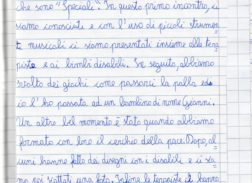 che sono "Speciali". In questo primo incontro, ci
siamo conosciuti e con l'uso di piccoli strumen
ti musicali ci siamo presentati insieme alle tera
piste e ai bimbi disabili. In seguito, abbiamo
svolto dei giochi come passarci la palla ed
io l'ho passata ad un bambino di nome Gianni.
Un altro bel momento è stato quando abbiamo
formato con loro il cerchio della pace. Dopo, al
cuni hanno fatto dei disegni con i disabili e ci sia
mo poi scattati una foto. Infine le terapiste ci hanno